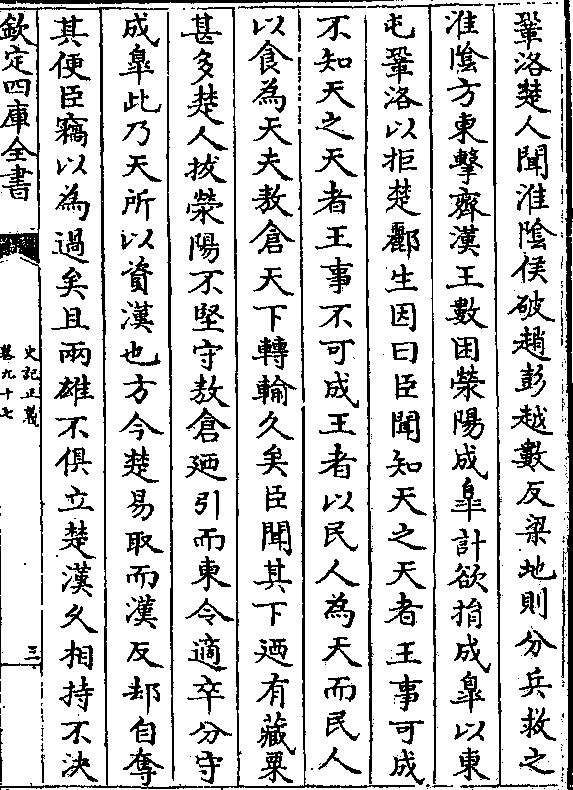 鞏洛楚人聞淮陰侯破趙彭越數反梁地則分兵救之
淮陰方東擊齊漢王數困滎陽成臯計欲捐成臯以東
屯鞏洛以拒楚酈生因曰臣聞知天之天者王事可成
不知天之天者王事不可成王者以民人為天而民人
以食為天夫敖倉天下轉輸久矣臣聞其下廼有藏粟
甚多楚人拔滎陽不堅守敖倉廼引而東令適卒分守
成臯此乃天所以資漢也方今楚易取而漢反却自奪
其便臣竊以為過矣且兩雄不俱立楚漢久相持不決
欽定四庫全書
史記正義
卷九十七
三